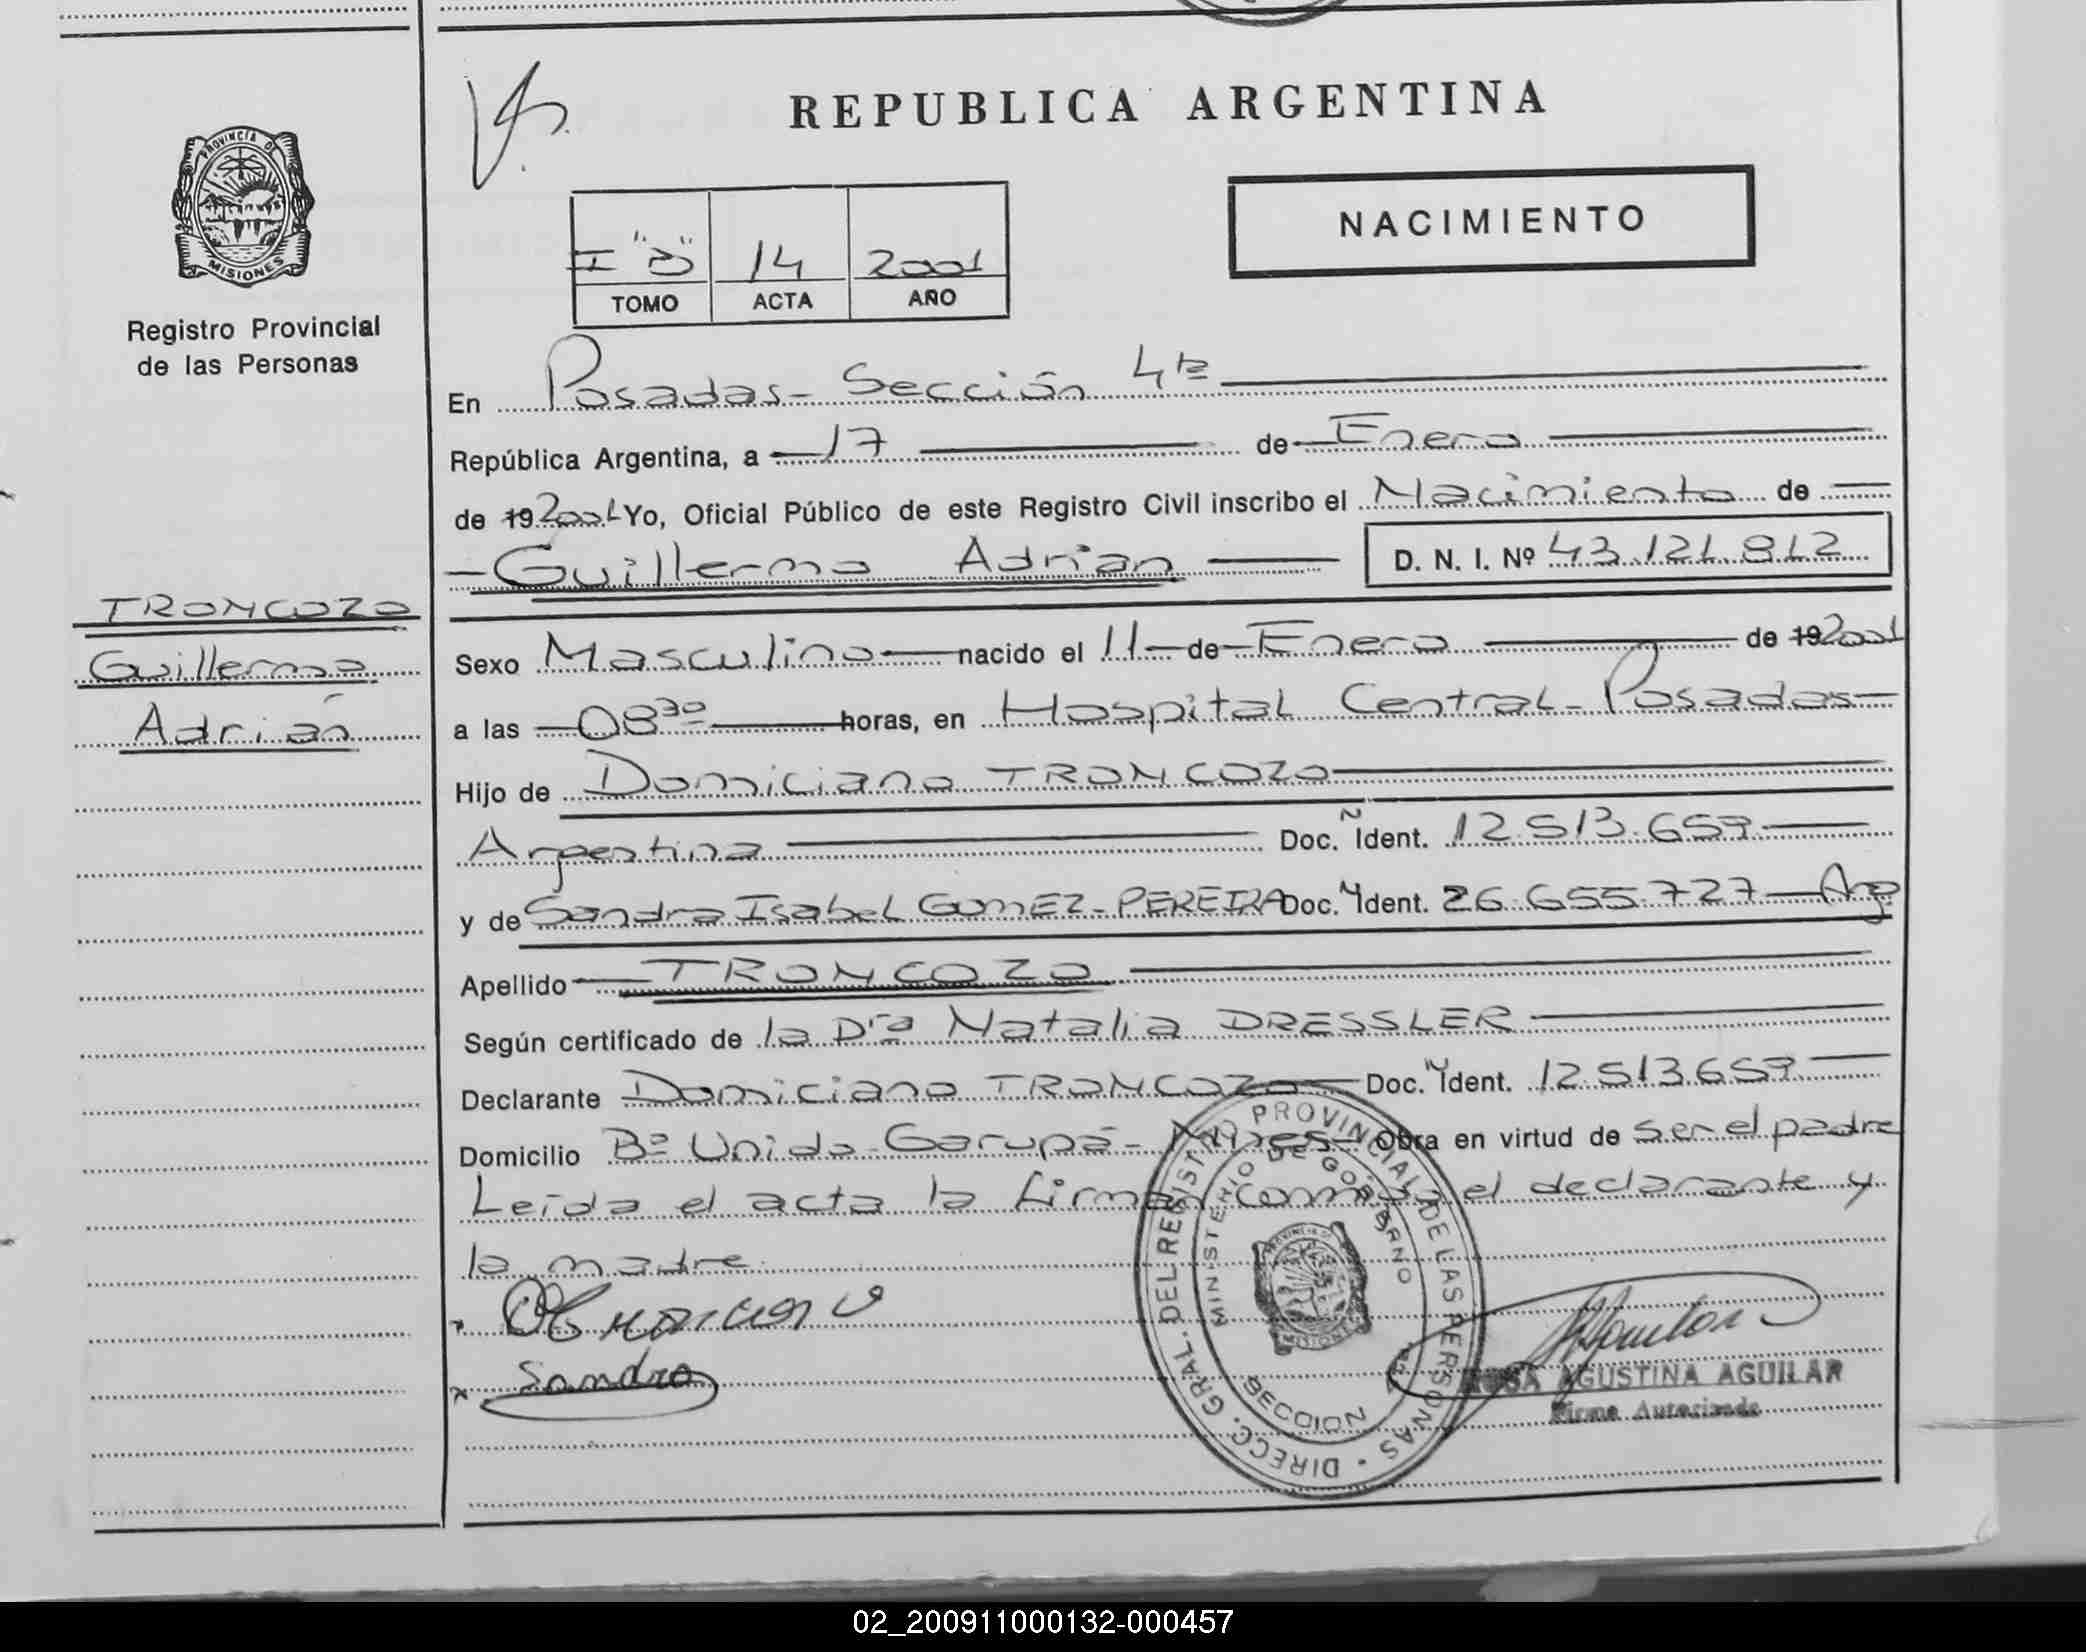 REPUBLICA ARGENTINA
NACIMIENTO
I "D" 14 2001
TOMO ACTA AÑO
PROVINCIA DE
MISIONES
Registro Provincial
de las Personas
En Posadas - Sección 4ta
República Argentina, a 17 de Enero
de 19 2001 Yo, Oficial Público de este Registro Civil inscribo el Nacimiento de
Guillermo Adrian D. N. I. Nº 43.121.812
TRONCOZO
Guillermo
Adrián
Sexo Masculino nacido el 11 de Enero de 19 2001
a las 08 30 horas, en Hospital Central - Posadas
Hijo de Domiciano TRONCOZO
Argentina Doc. Ñ Ident. 12.513.659
y de Sandra Isabel GOMEZ - PEREIRA Doc. Ident. 26.655.727 - Arg
Apellido TRONCOZO
Según certificado de la Dra Natalia DRESSLER
Declarante Domiciano TRONCOZO Doc. Ident. 12.513.659
Domicilio Bº Unido - Garupá - Mnes - Obra en virtud de ser el padre
Leída el acta la firman conmigo el declarante y
la madre.
Domiciano
Sandra
DIRECC. GRAL. DEL REGISTRO PROVINCIAL DE LAS PERSONAS
MINISTERIO DE GOBIERNO
MISIONES
SECCION
ROSA AGUSTINA AGUILAR
Firma Autorizada
02_200911000132-000457